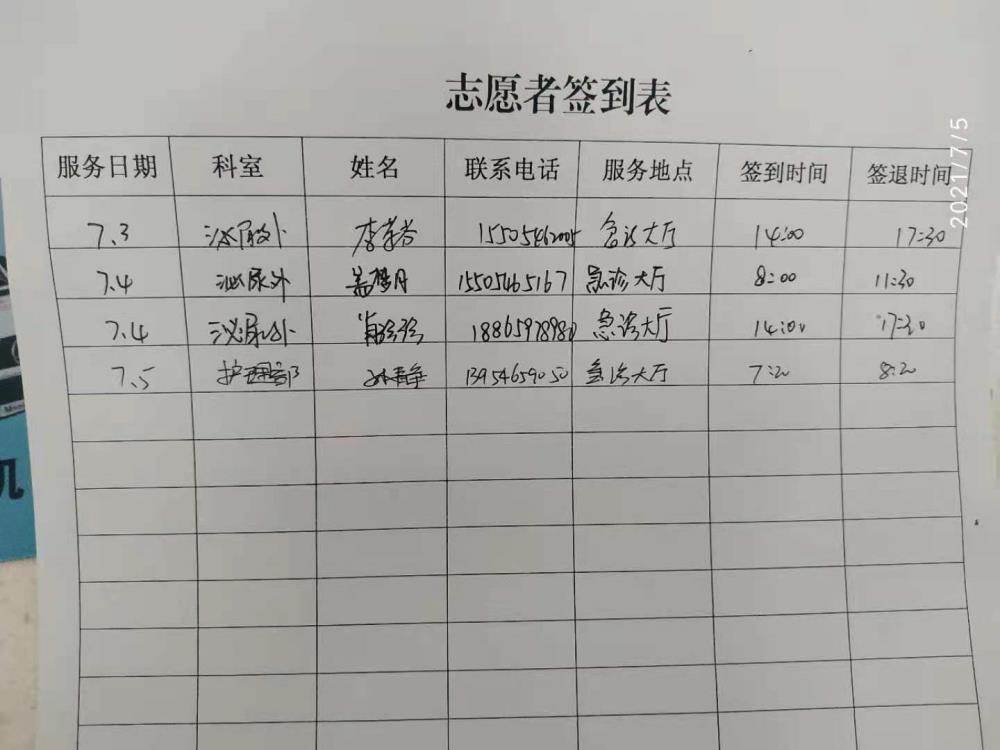 志愿者签到表
服务日期 科室 姓名 联系电话 服务地点 签到时间 签退时间
7.3 泌尿外 李 急诊大厅 14:00 17:30
7.4 泌尿外 盖梦月 15505465167 急诊大厅 8:00 11:30
7.4 泌尿外 肖珍珍 18865978980 急诊大厅 14:00 17:30
7.5 护理部 孙静 13954659050 急诊大厅 7:20 8:20
2021/7/5
机